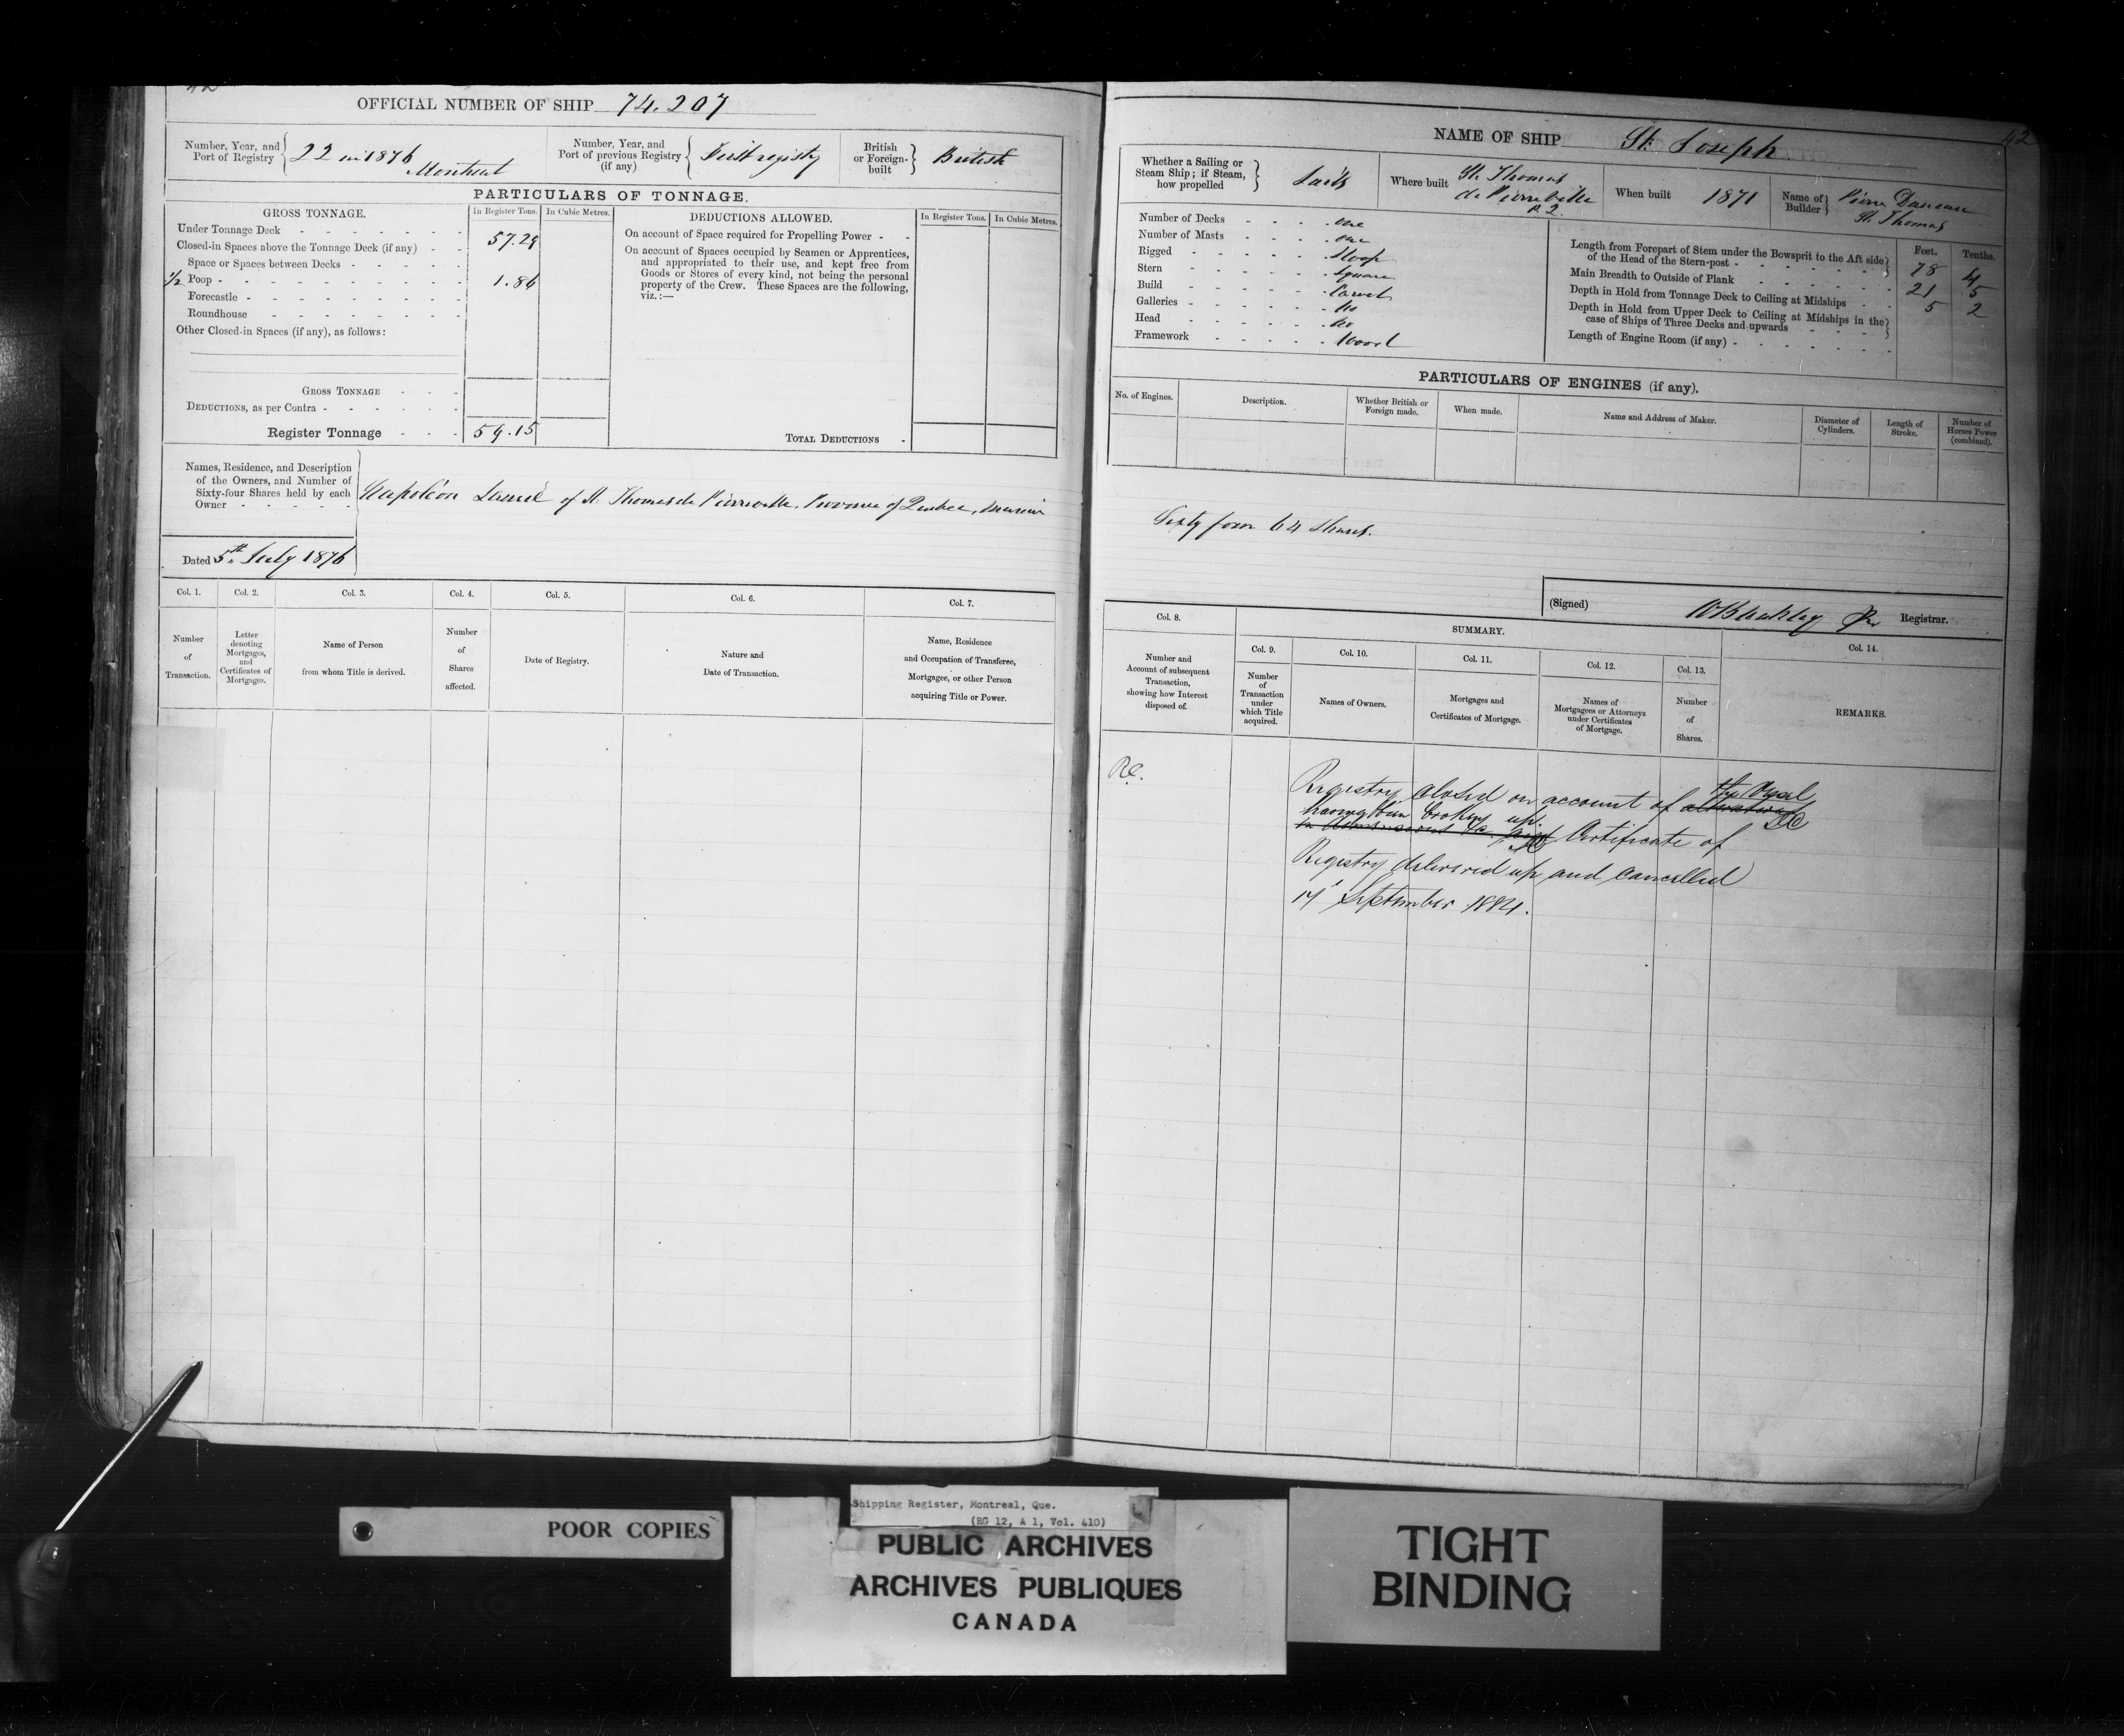 42
OFFICIAL NUMBER OF SHIP 74.207
Number, Year, and Port of Registry 22 in 1876 Montreal
Number, Year, and Port of previous Registry (if any) First registry
British or Foreign-built British
PARTICULARS OF TONNAGE.
GROSS TONNAGE.
In Register Tons. In Cubic Metres.
DEDUCTIONS ALLOWED.
In Register Tons. In Cubic Metres.
Under Tonnage Deck 57.29
Closed-in Spaces above the Tonnage Deck (if any)
Space or Spaces between Decks
1/2 Poop 1.86
Forecastle
Roundhouse
Other Closed-in Spaces (if any), as follows:
On account of Space required for Propelling Power
On account of Spaces occupied by Seamen or Apprentices,
and appropriated to their use, and kept free from
Goods or Stores of every kind, not being the personal
property of the Crew. These Spaces are the following,
viz.:—
GROSS TONNAGE
DEDUCTIONS, as per Contra
Register Tonnage 59.15
TOTAL DEDUCTIONS
Names, Residence, and Description
of the Owners, and Number of
Sixty-four Shares held by each
Owner
Napoléon of St. Thomas de Pierreville, Province of Quebec,
Dated 5th July 1876
Col. 1. Col. 2. Col. 3. Col. 4. Col. 5. Col. 6. Col. 7.
Number of Transaction.
Letter denoting Mortgages, and Certificates of Mortgages.
Name of Person from whom Title is derived.
Number of Shares affected.
Date of Registry.
Nature and Date of Transaction.
Name, Residence and Occupation of Transferee, Mortgagee, or other Person acquiring Title or Power.
42
NAME OF SHIP St. Joseph
Whether a Sailing or Steam Ship; if Steam, how propelled Sails
Where built St. Thomas de Pierreville P.Q.
When built 1871
Name of Builder Pierre St. Thomas
Number of Decks one
Number of Masts one
Rigged Sloop
Stern Square
Build Carvel
Galleries No
Head No
Framework Wood
Feet. Tenths.
Length from Forepart of Stem under the Bowsprit to the Aft side of the Head of the Stern-post 78 4
Main Breadth to Outside of Plank 21 5
Depth in Hold from Tonnage Deck to Ceiling at Midships 5 2
Depth in Hold from Upper Deck to Ceiling at Midships in the case of Ships of Three Decks and upwards
Length of Engine Room (if any)
PARTICULARS OF ENGINES (if any).
No. of Engines.
Description.
Whether British or Foreign made.
When made.
Name and Address of Maker.
Diameter of Cylinders.
Length of Stroke.
Number of Horses Power (combined).
Sixty four 64 Shares.
(Signed) Registrar.
Col. 8.
SUMMARY.
Col. 9. Col. 10. Col. 11. Col. 12. Col. 13. Col. 14.
Number and Account of subsequent Transaction, showing how Interest disposed of.
Number of Transaction under which Title acquired.
Names of Owners.
Mortgages and Certificates of Mortgage.
Names of Mortgagees or Attorneys under Certificates of Mortgage.
Number of Shares.
REMARKS.
Registry closed on account of the Vessel
having been broken up. Certificate of
Registry delivered up and cancelled
September 1884.
POOR COPIES
Shipping Register, Montreal, Que.
(RG 12, A 1, Vol. 410)
PUBLIC ARCHIVES
ARCHIVES PUBLIQUES
CANADA
TIGHT
BINDING